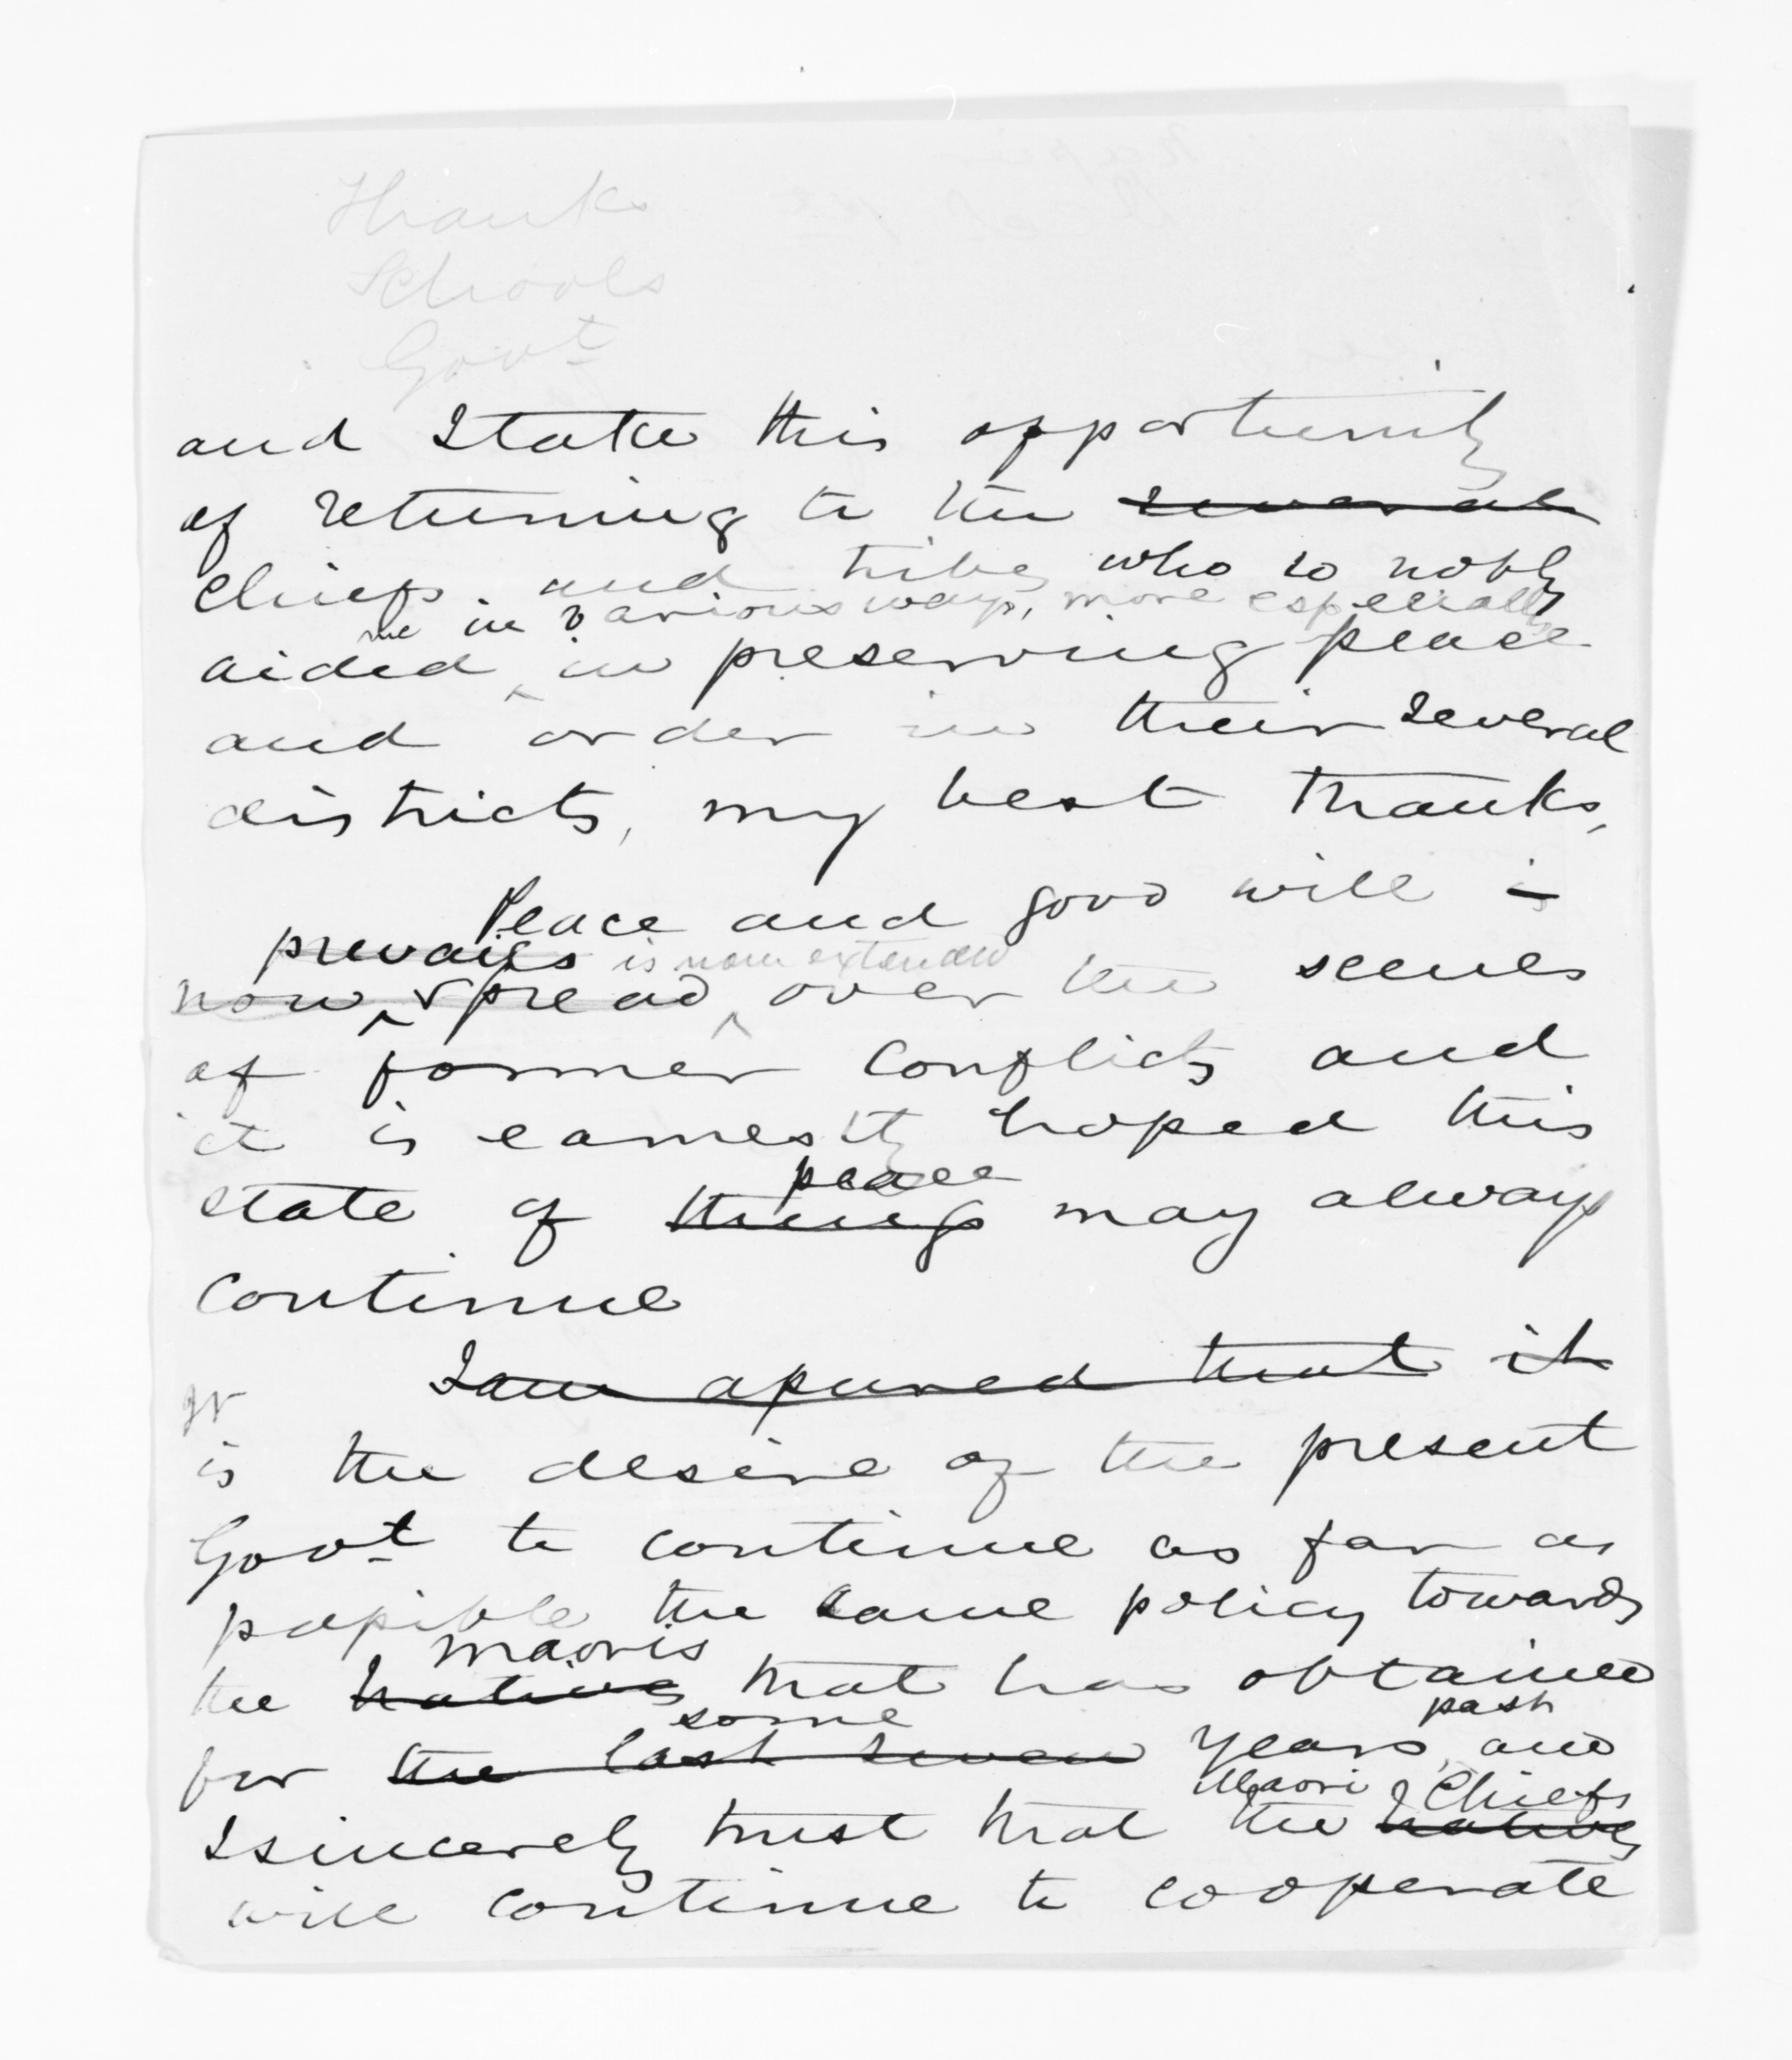 Thanks
Schools
Govt
and I take this opportunity
of returning to the several
Chiefs and tribes who so nobly
me in various ways, more especially
aided in preserving peace
and order in their several
districts, my best thanks,
Peace and good will is
prevails is now extended
now spread over the scenes
of former conflicts and
it is earnestly hoped this
peace
state of things may always
continue
I am assured that it
It
is the desire of the present
Govt to continue as far as
possible the same policy towards
maoris
the natives that has obtained
some past
for the last seven years, and
Maori Chiefs
I sincerely trust that the natives
will continue to cooperate